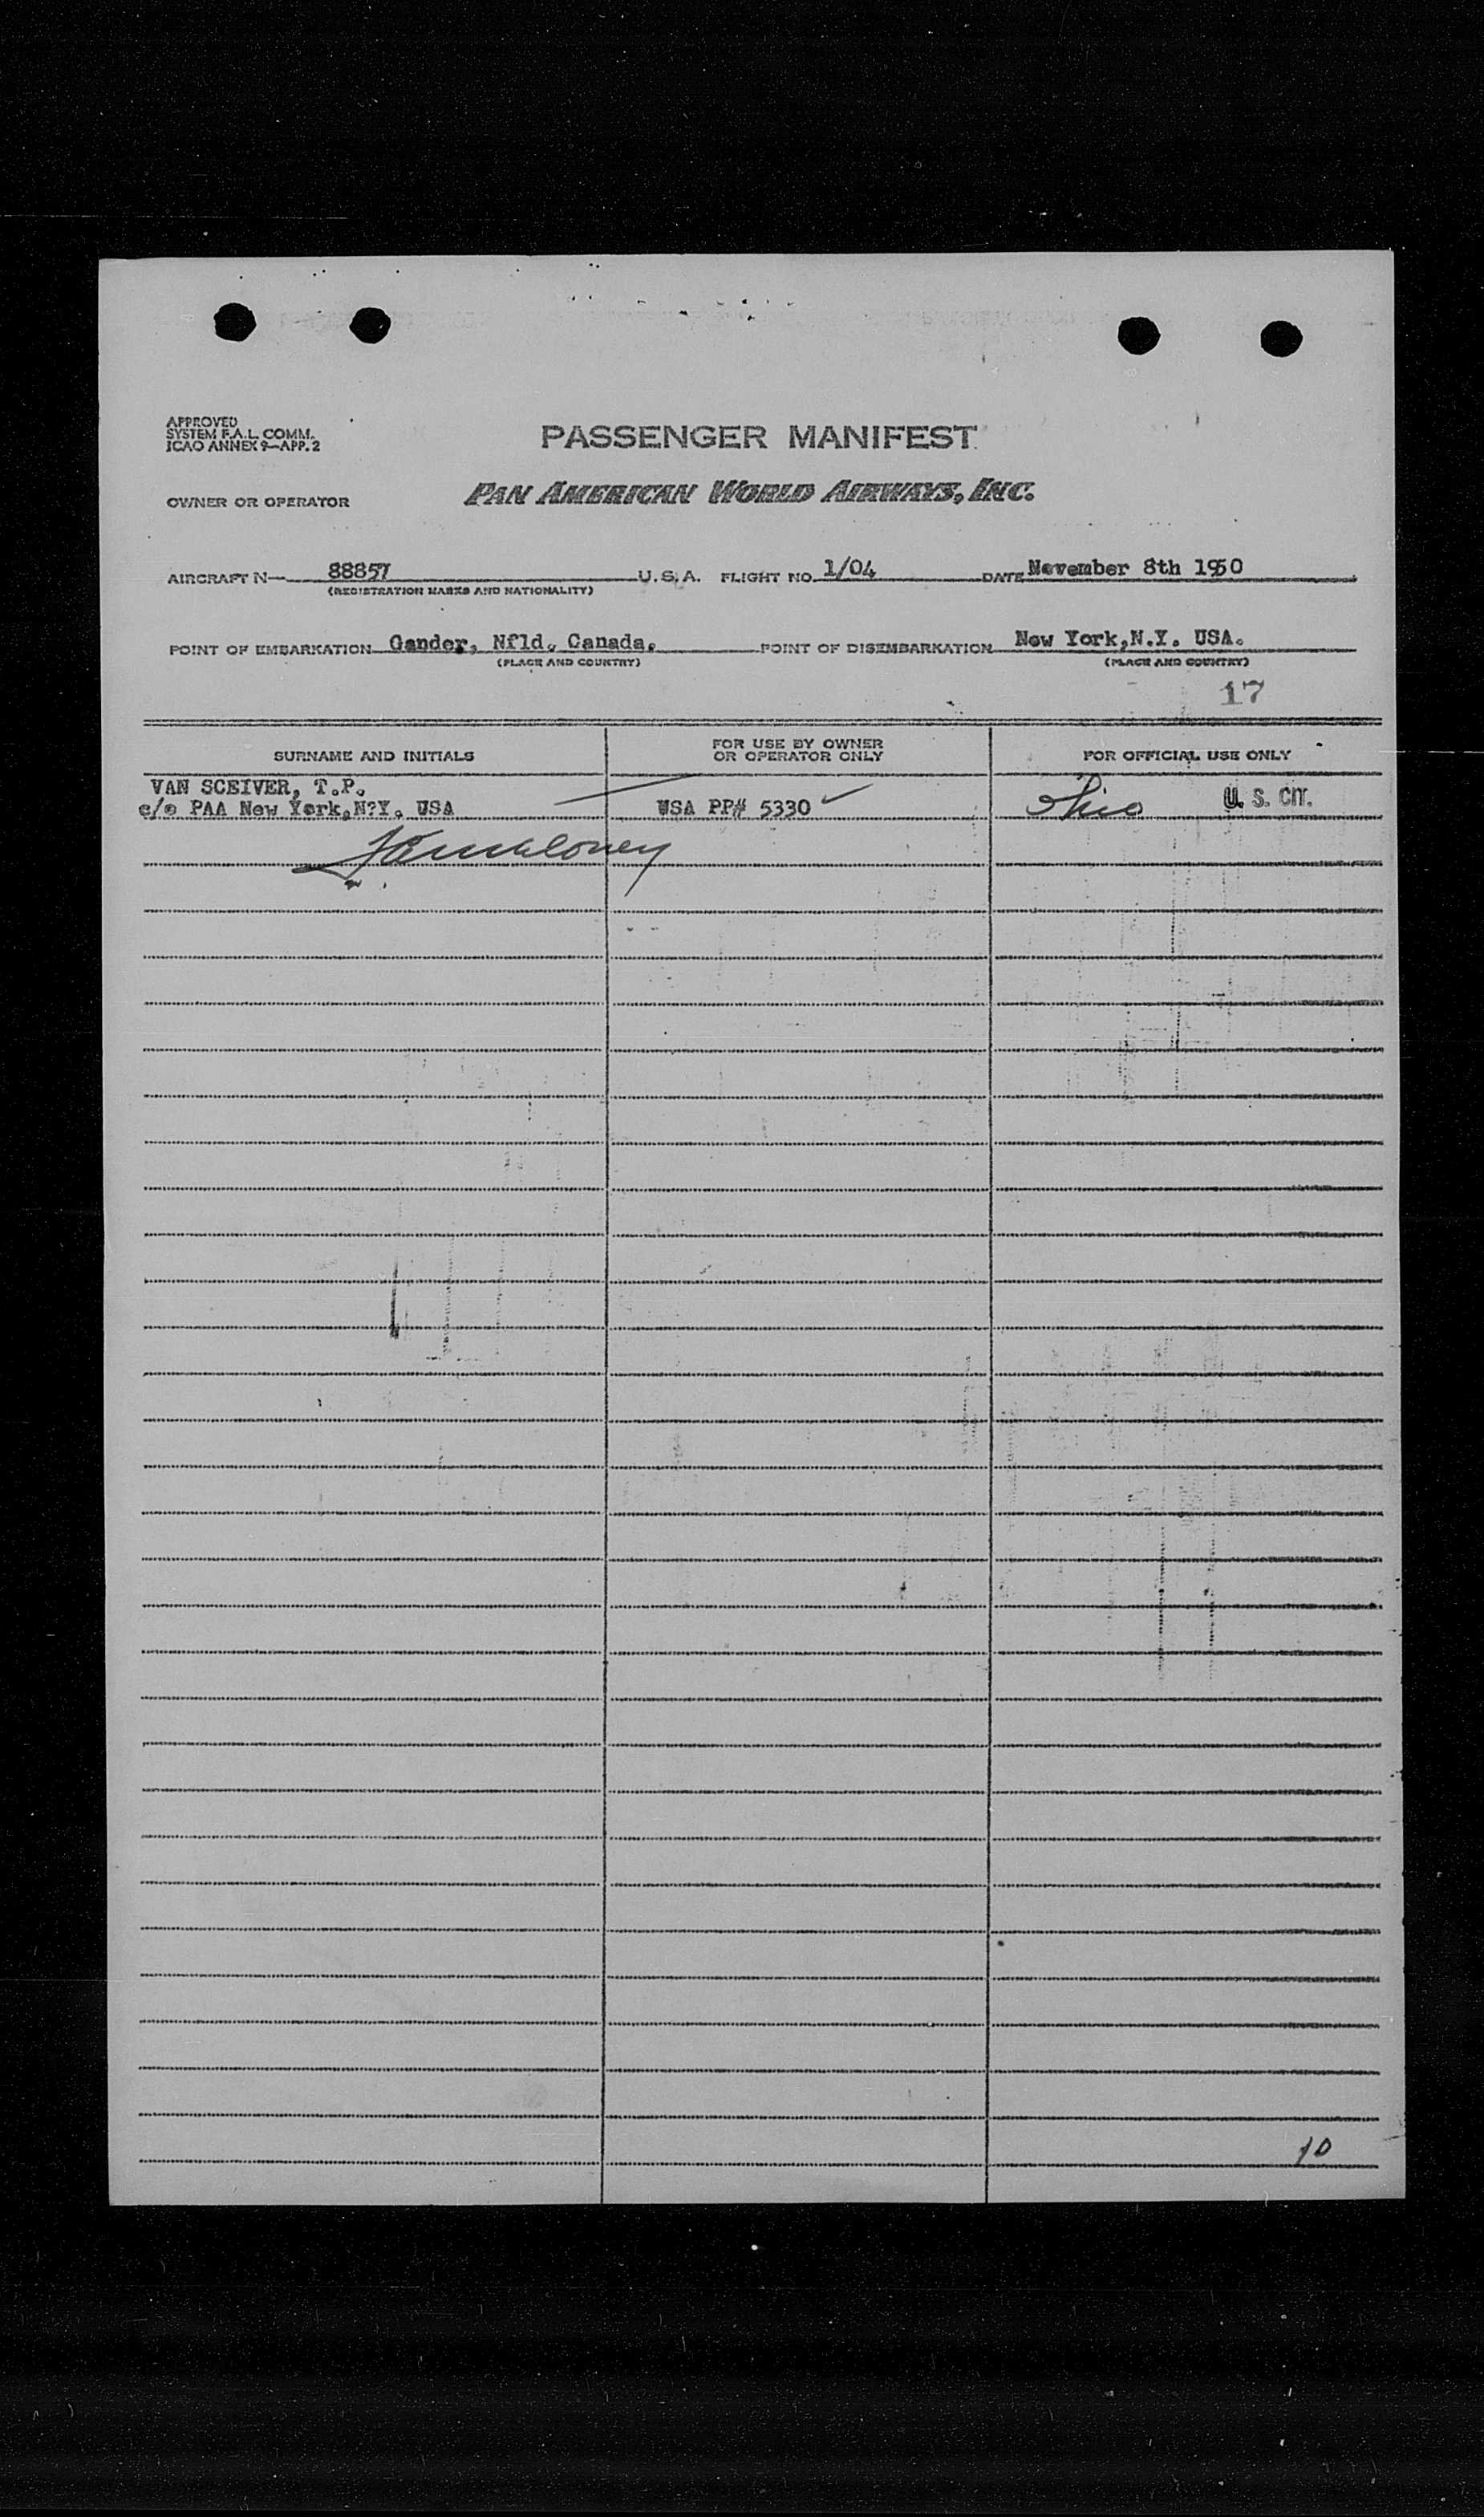 APPROVED
SYSTEM F.A.L. COMM.
ICAO ANNEX 9—APP. 2
PASSENGER MANIFEST
OWNER OR OPERATOR PAN AMERICAN WORLD AIRWAYS, INC.
AIRCRAFT N— 88857 U. S. A. FLIGHT NO. 1/04 DATE November 8th 1950
(REGISTRATION MARKS AND NATIONALITY)
POINT OF EMBARKATION Gander, Nfld. Canada. POINT OF DISEMBARKATION New York,N.Y. USA.
(PLACE AND COUNTRY) (PLACE AND COUNTRY)
17
SURNAME AND INITIALS FOR USE BY OWNER OR OPERATOR ONLY FOR OFFICIAL USE ONLY
VAN SCEIVER, T.P.
c/o PAA New York,N?Y. USA USA PP# 5330 ✓ Ohio U. S. CIT.
10